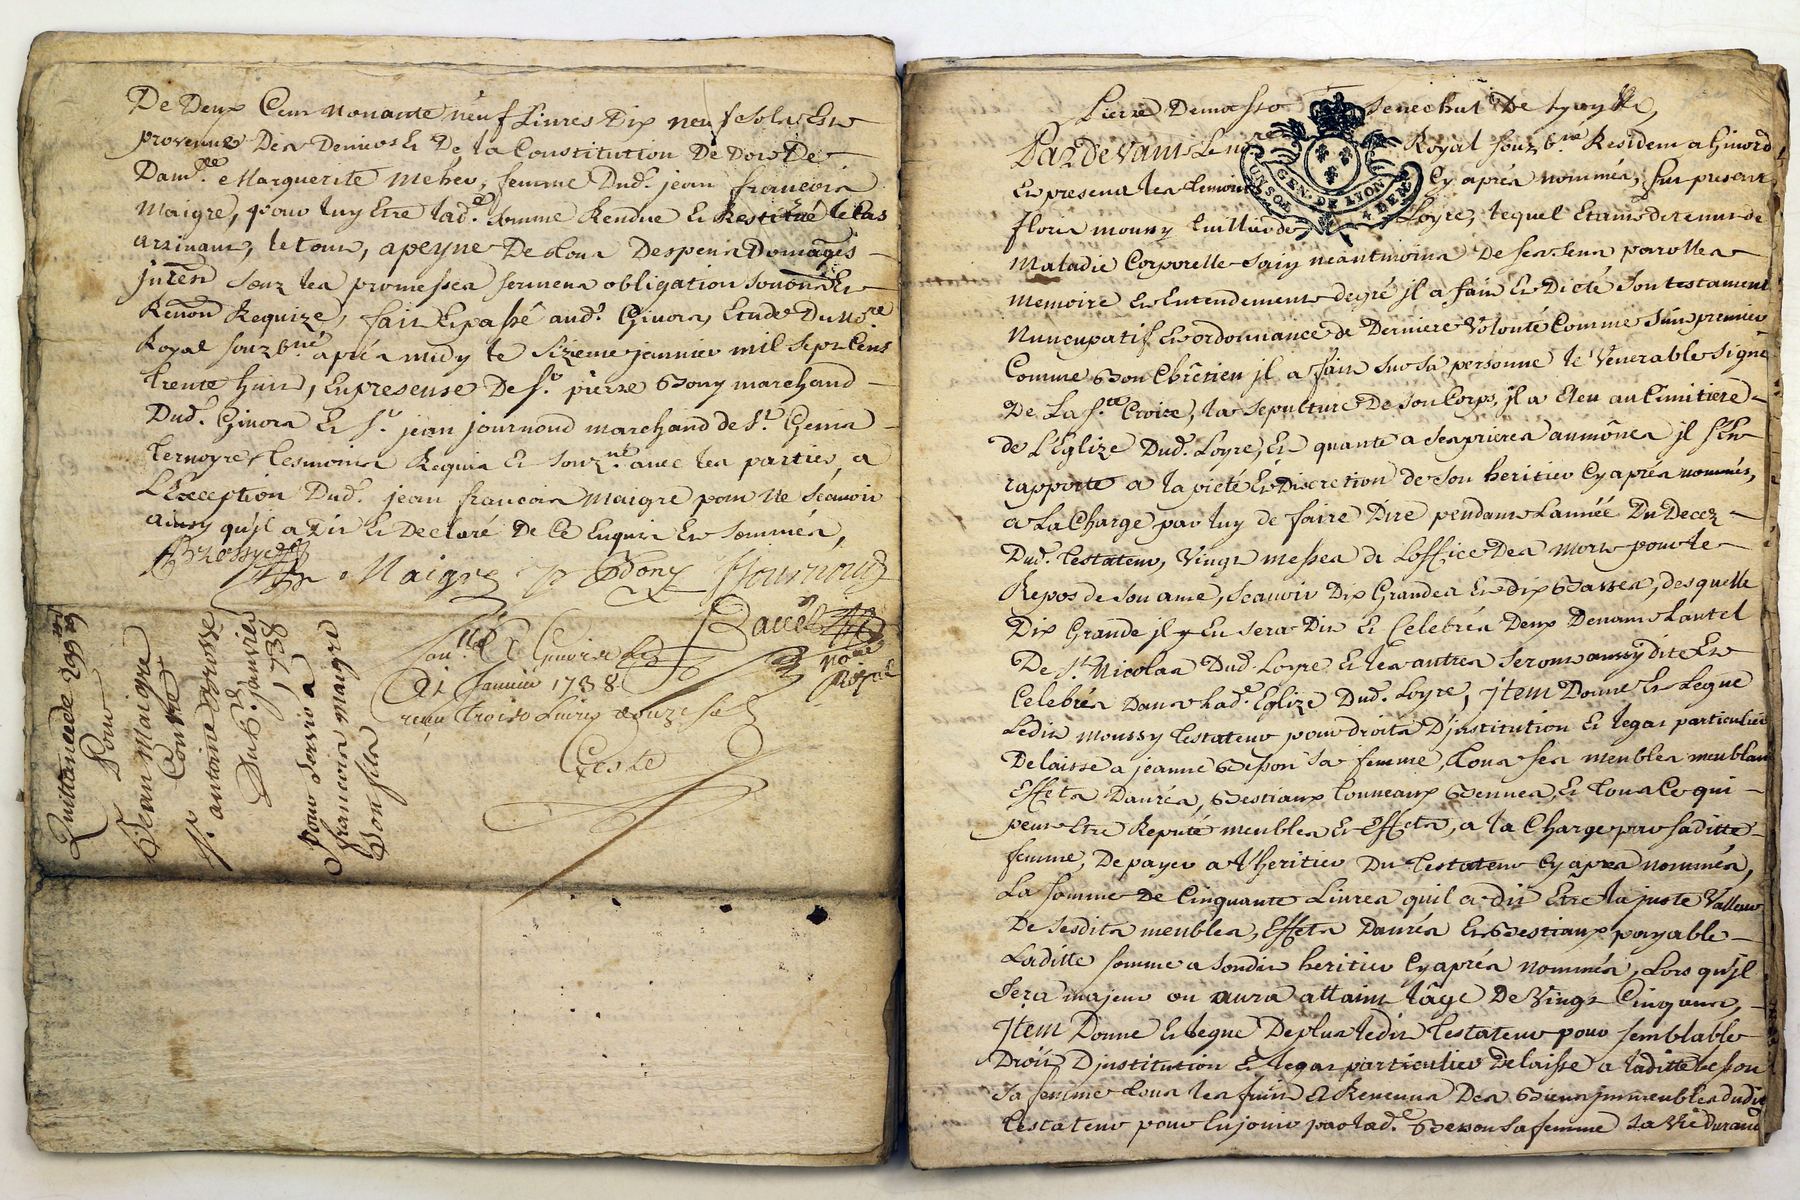 De Deux Cent nonante neuf Livres Dix neuf sols Et
provenue Des Deniers Et De la Constitution De Dot De
Dam.lle Marguerite meher, femme Dud. jean francois
Maigre, pour luy Etre lad.e somme Rendue Et Restitué le Cas
arrivant, le tout, apeyne De tous Despens Domages
jnterest souz les promesses serments obligation soumon Et
Renon Requize, fait Et passé aud. Givors, Etude Du No.re
Royal souzsné après midy le sizieme janvier mil sept Cent
trente huit, En presense De s.r pierre Bony marchand
Dud. Givors Et s.r jean journoud marchand de S.t Genis
Ternoyre tesmoins Requis Et souz.né avec les parties, a
L'Exception Dud. jean francois Maigre pour Ne scavoir
ainsy qu'jl a Dit Et Declaré De Ce Enquis Et sommés,
Brossy Maigre p Bony Journoud
Con.llé A Givors Le
21 Janvier 1738
recu trois Livres douze sols
Baces
No.re
Royal
Quittance de 299 19
Pour
Jean Maigre
Contre
s.r antoine brosse
Du 6.e janvier
1738
Pour servir a
francois Maigre
Son fils
Pierre Senechal De Lyon
Pardevant Le no.re Royal souzsné Resident a Givord
Et present les temoins Cy après nommés, fut present
floris moussy Loyre, lequel Etant detenu de
Maladie Corporelle sain neantmoins De ses sens parolles
memoire Et Entendement degré jl a fait Et Dicté Son testament
Nuncupatif Et ordonnance de Derniere Volonté Comme suit premier
Comme Bon Chrêtien jl a fait sur sa personne le Venerable signe
De La S.te Croix, la sepulture De son Corps, jl a Eleu au Cimitiere
de L'Eglize Dud. Loyre, Et quante a ses prieres aumônes jl s'En
rapporte a la pieté Et Discretion de son heritier Cy après nommés,
a La Charge par luy de faire Dire pendant L'année Du Decez
Dud. testateur, Vingt messes de L'office Des morts pour le
Repos de son ame, scavoir Dix Grandes Et dix Basses, desquelle
Dix Grande jl y En sera Dit Et Celebrés Deux Devant L'autel
De S.t Nicolas Dud. Loyre Et les autres seront aussy dite Et
Celebrés Dans Lad.e Eglize Dud. Loyre, jtem Donne Et Legue
Ledit moussy testateur pour droits D'jnstitution Et legat particulier
Delaisse a jeanne Besson sa femme, tous ses meubles meublant
Effets Danrés, Bestiaux tonneaux Bennes, Et tous Ce qui
peut Etre Reputé meubles Et Effets, a la Charge par saditte
femme, De payer a L'heritier Du testateur Cy après nommés,
La somme De Cinquante Livres qu'il a dit Etre la juste Valleur
De sesdits meubles, Effets Danrés Et Bestiaux payable
Laditte somme a sondit heritier Cy après nommés, Lors qu'jl
sera majeur ou aura attaint l'âge De Vingt Cinq ans,
jtem Donne Et legue De plus ledit testateur pour semblable
Droit D'jnstitution Et legat particulier Delaisse a laditte besson
sa femme tous les fruit Et Revenus Des Biens jmmeubles dudit
testateur pour En jouir par lad.e Besson sa femme sa Vie durant
GEN. DE LYON